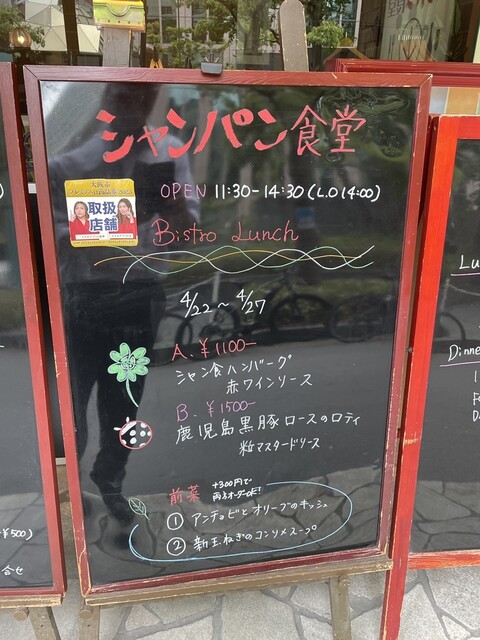 シャンパン食堂
OPEN 11:30-14:30(L.O 14:00)
大阪市
取扱
店舗
Bistro Lunch
4/22～4/27
A. ¥1100-
シャン食ハンバーグ
赤ワインソース
B. ¥1500-
鹿児島黒豚ロースのロティ
粒マスタードソース
前菜 +300円で
両方オーダーOK!
① アンチョビとオリーブのキッシュ
② 新玉ねぎのコンソメスープ
Lu
Dinne
¥500)
合せ